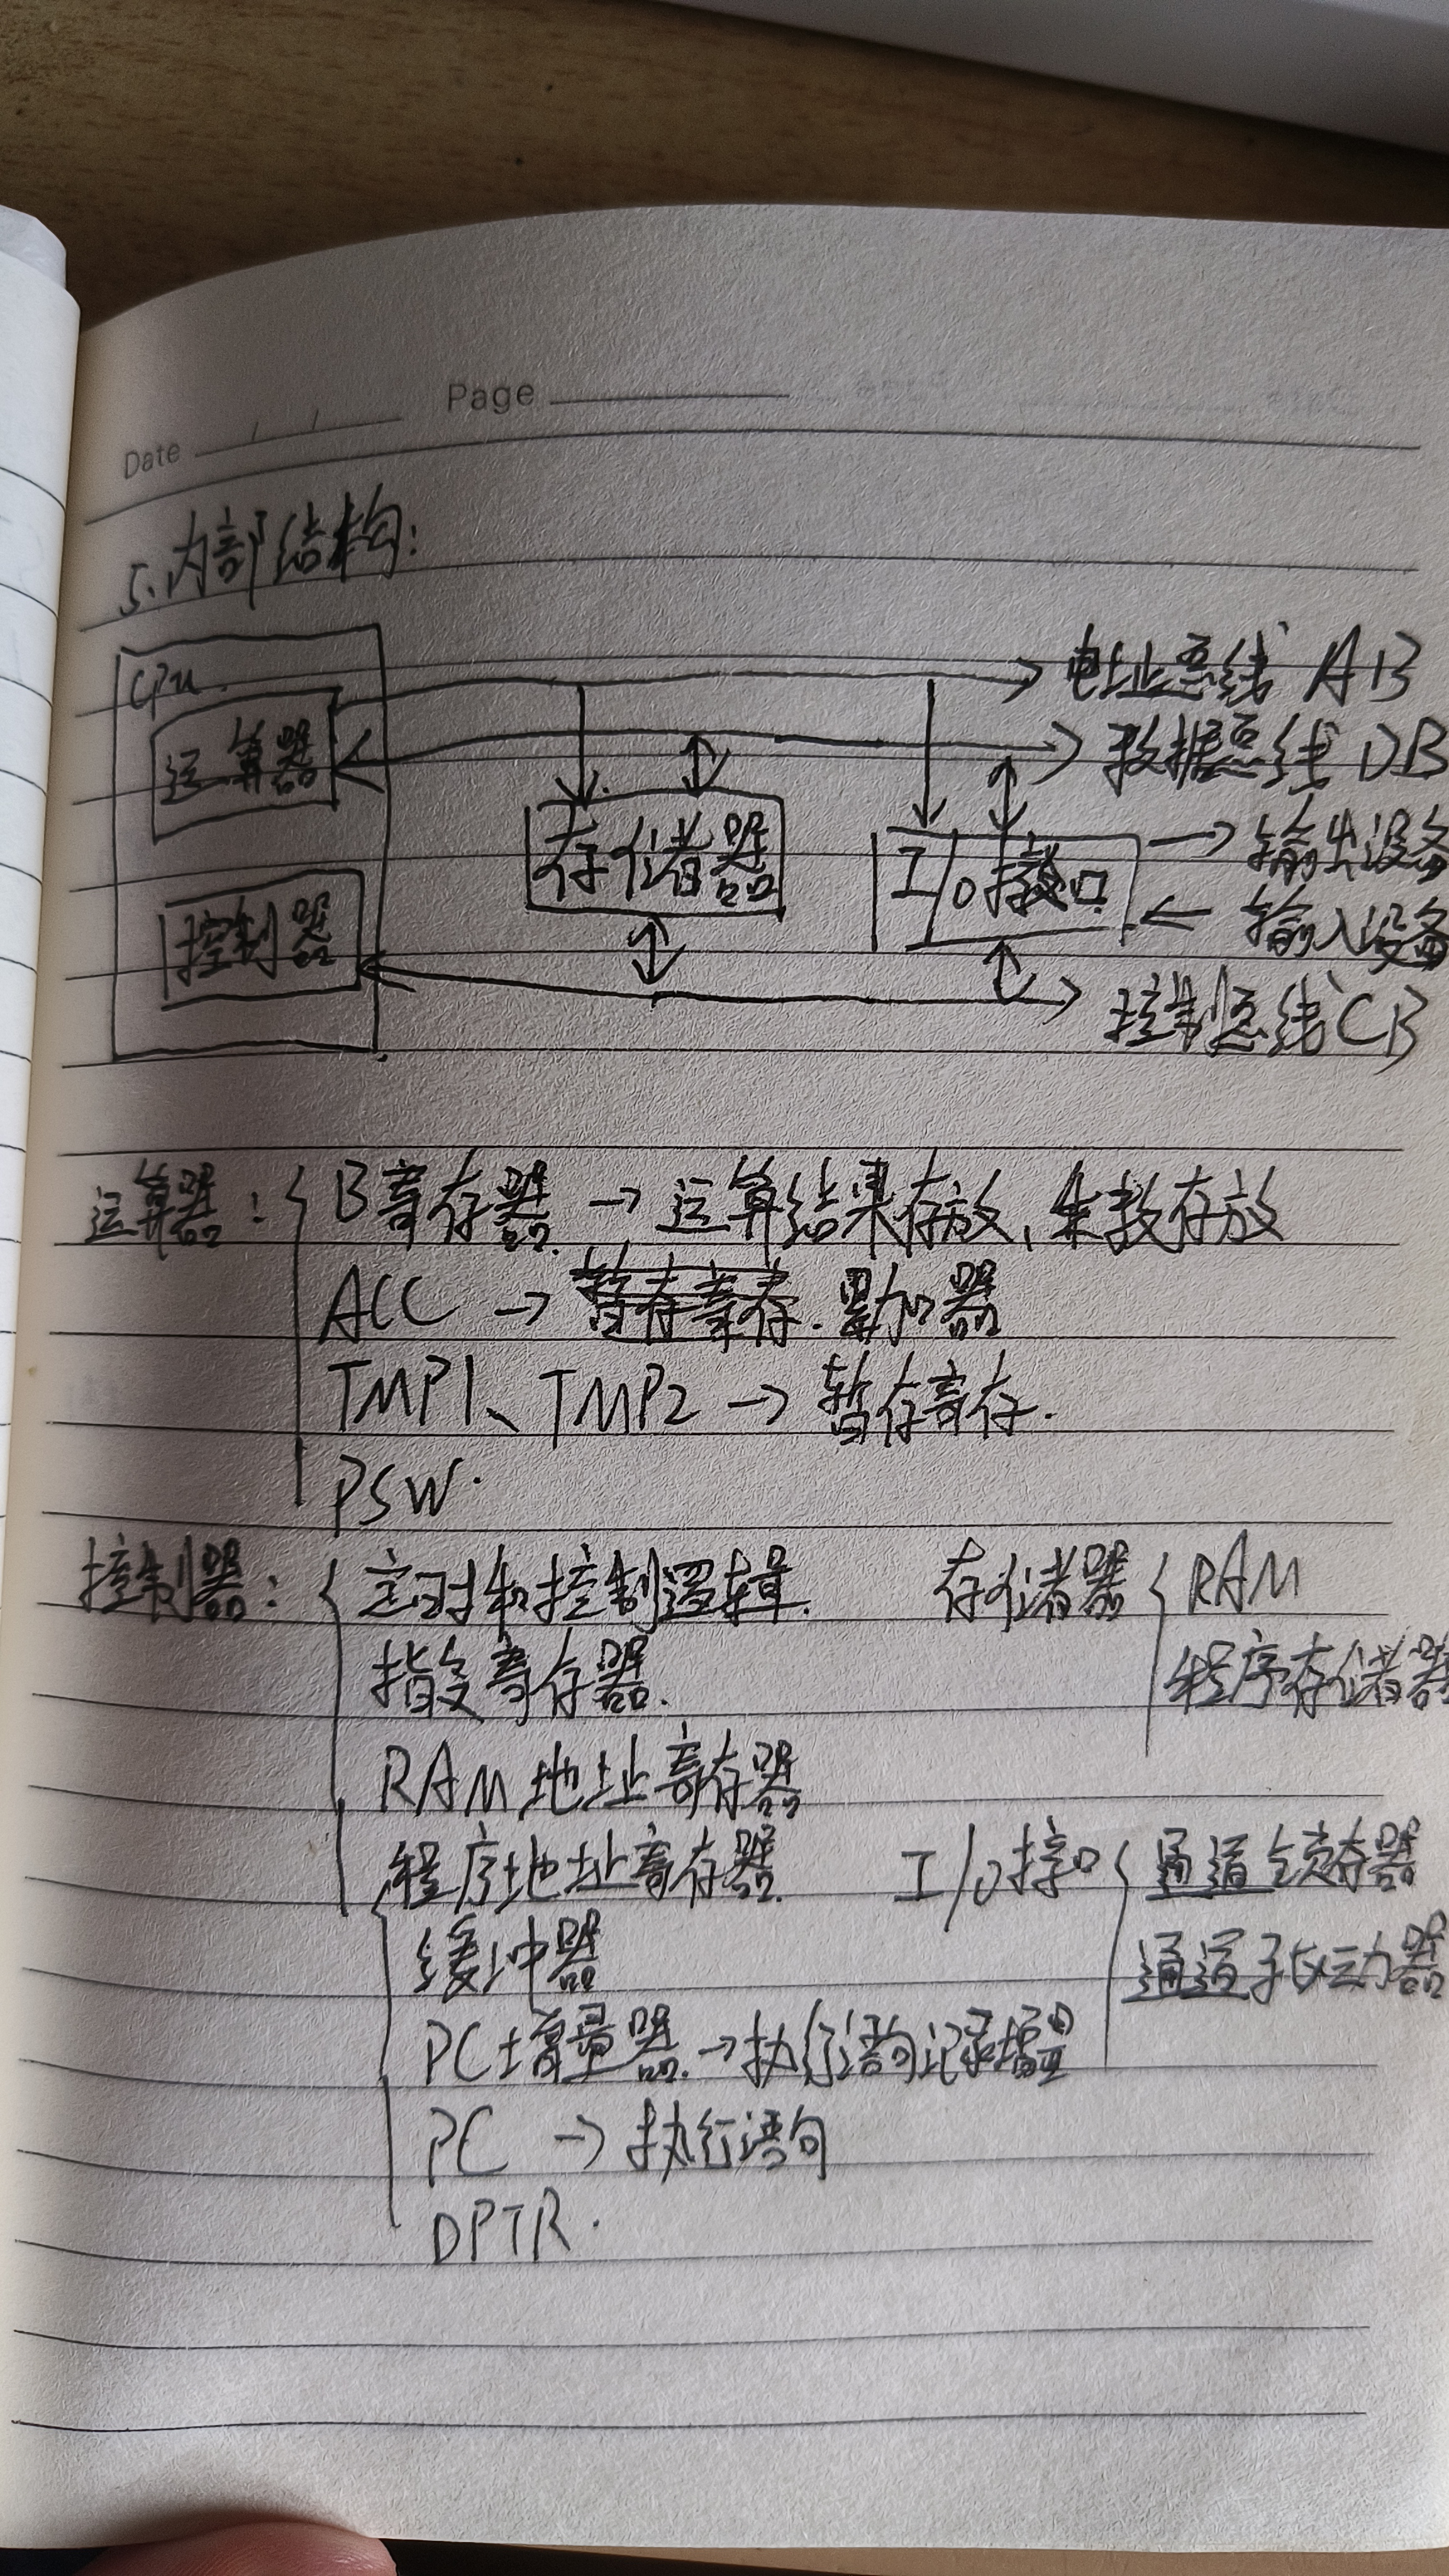 Date / / Page
5.内部结构:
CPU
运算器
控制器
存储器
I/O接口
电址总线 AB
数据总线 DB
输出设备
输入设备
控制总线 CB
运算器: B寄存器 → 运算结果存放,余数存放
ACC → 暂存寄存. 累加器
TMP1、TMP2 → 暂存寄存.
PSW.
控制器: 定时和控制逻辑.
指令寄存器.
RAM 地址寄存器
程序地址寄存器.
缓冲器
PC增量器. → 执行语句记录增量
PC → 执行语句
DPTR.
存储器 RAM
程序存储器
I/O接口 通道锁存器
通道驱动器